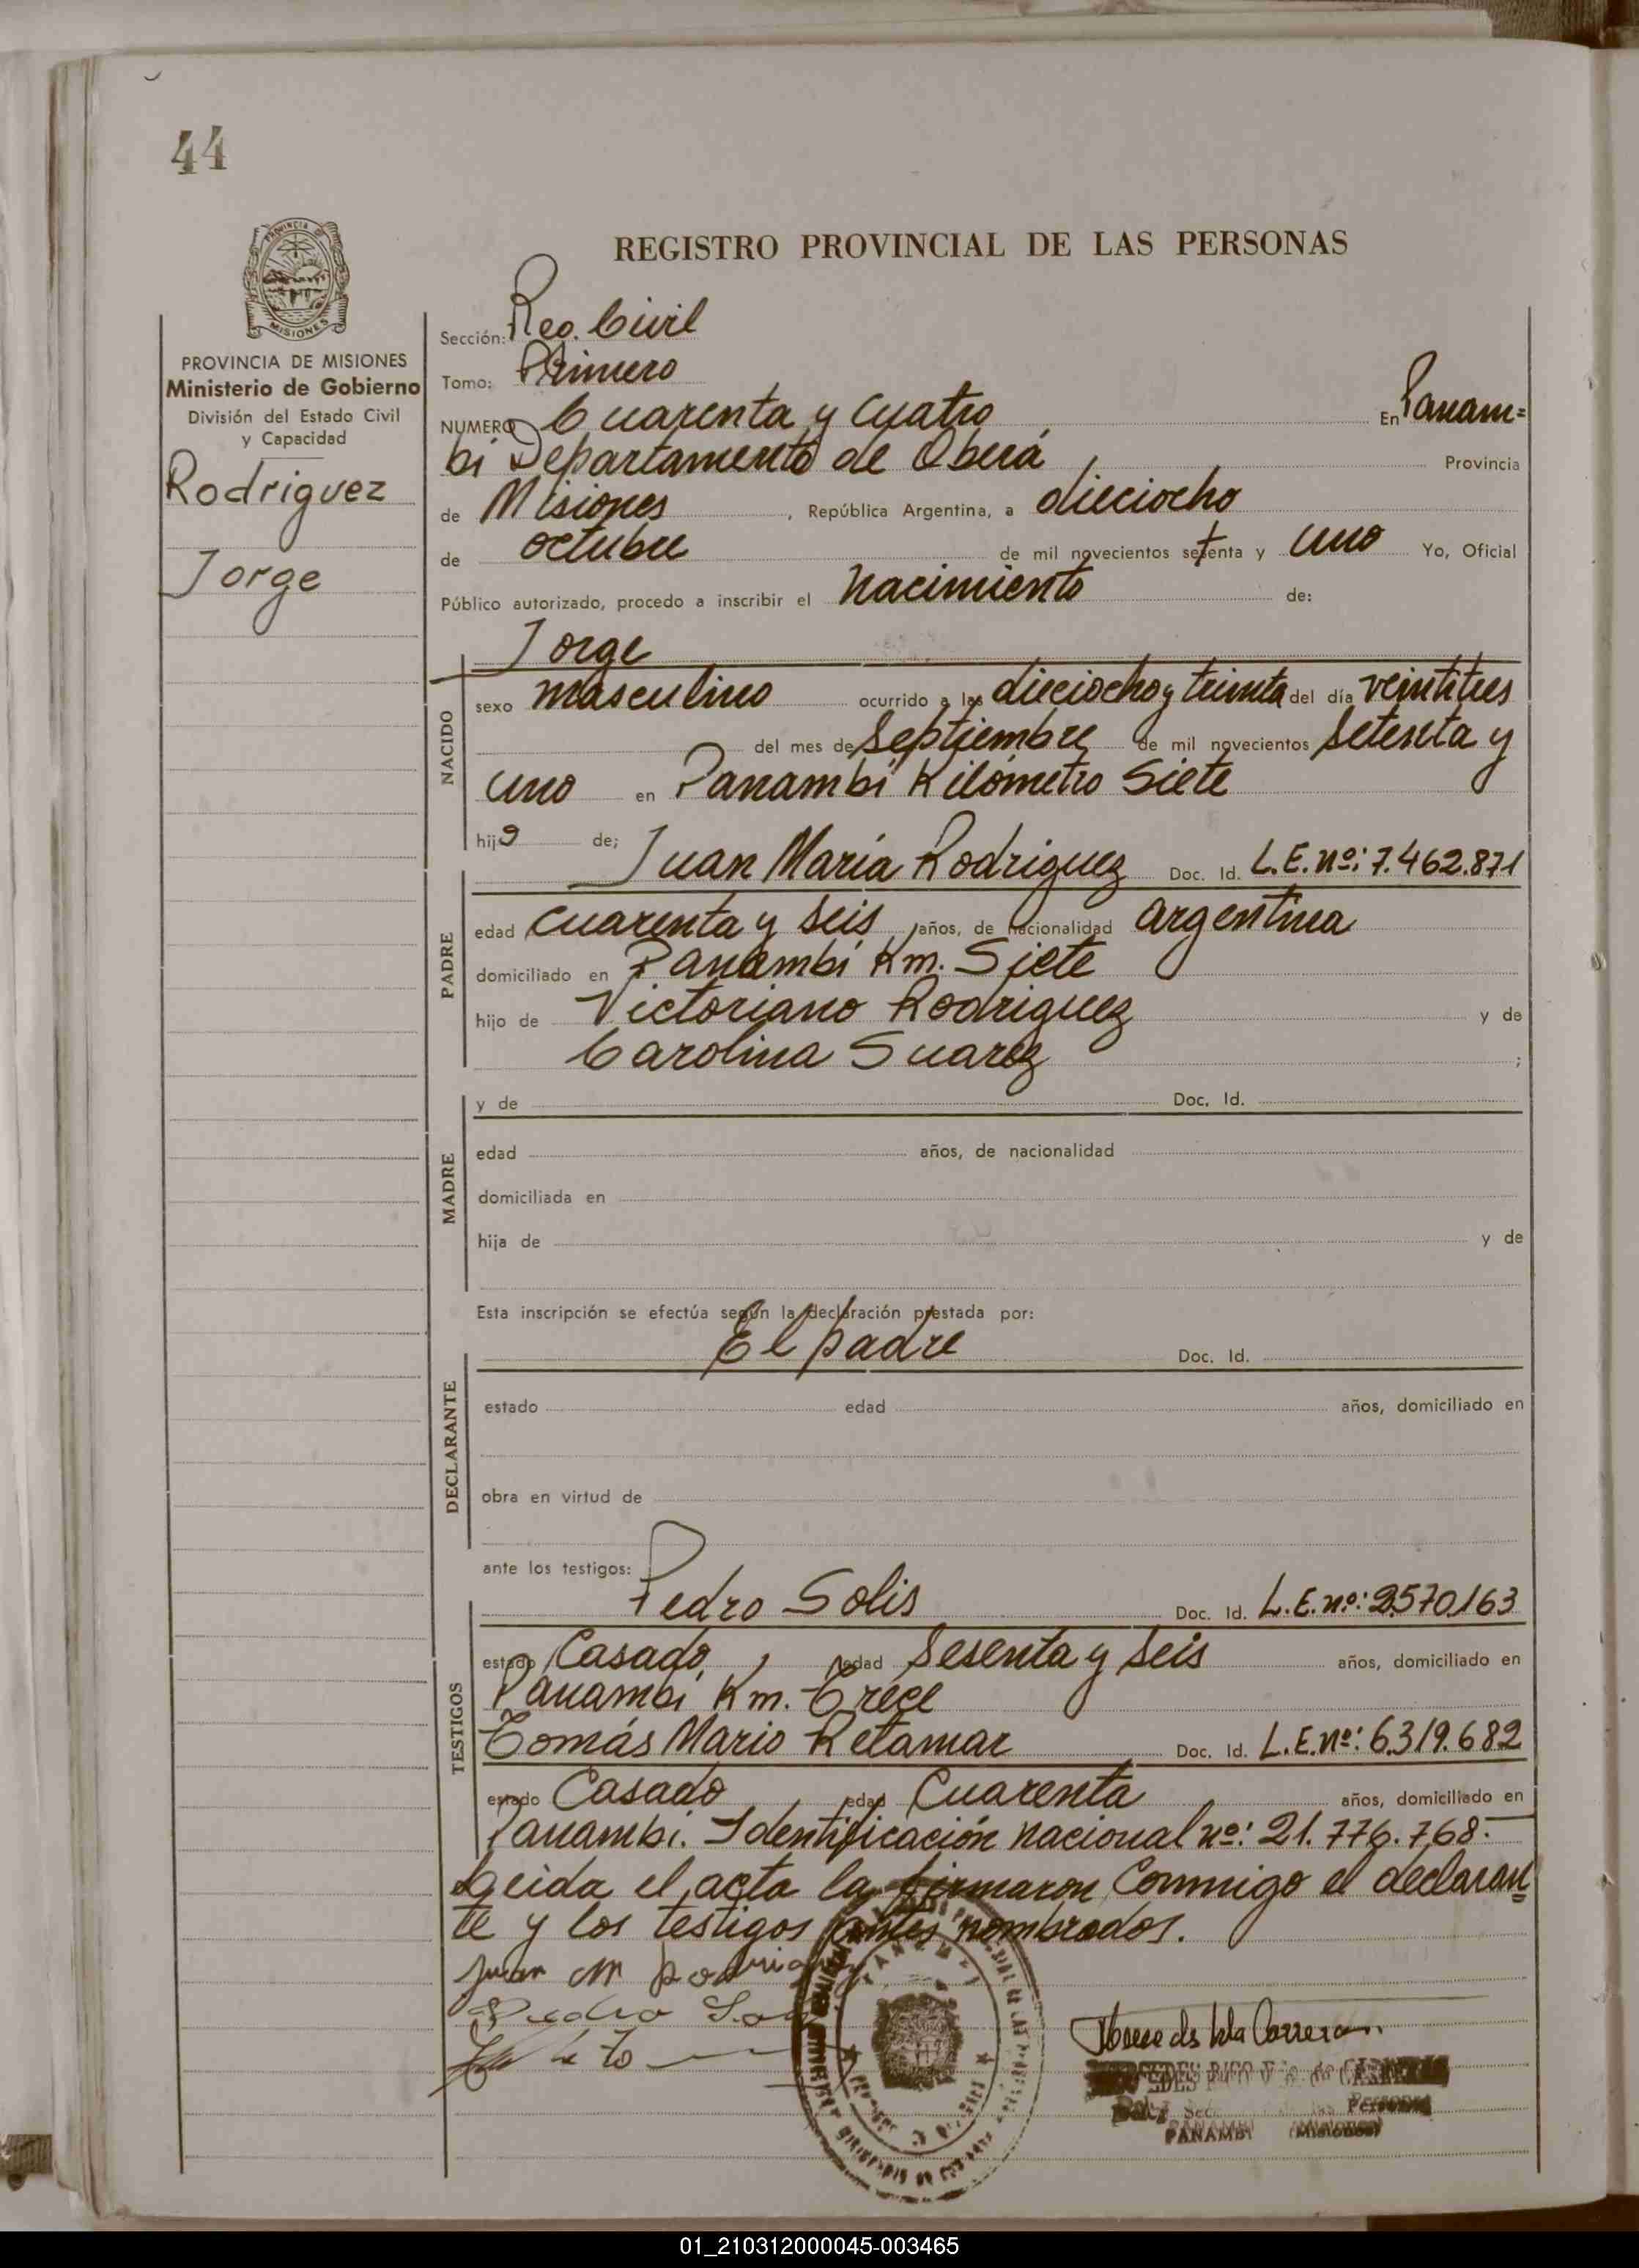 44
PROVINCIA DE MISIONES
REGISTRO PROVINCIAL DE LAS PERSONAS
PROVINCIA DE MISIONES
Ministerio de Gobierno
División del Estado Civil
y Capacidad
Rodriguez
Jorge
Sección: Reg. Civil
Tomo: Primero
NUMERO Cuarenta y Cuatro En Panam=
bi Departamento de Oberá Provincia
de Misiones, República Argentina, a dieciocho
de octubre de mil novecientos setenta y uno Yo, Oficial
Público autorizado, procedo a inscribir el nacimiento de:
NACIDO
Jorge
sexo masculino ocurrido a las dieciocho y treinta del día veintitres
del mes de Septiembre de mil novecientos Setenta y
uno en Panambí Kilómetro Siete
hijo de;
PADRE
Juan María Rodriguez Doc. Id. L.E. nº: 7.462.871
edad cuarenta y seis años, de nacionalidad argentina
domiciliado en Panambí Km. Siete
hijo de Victoriano Rodriguez y de
Carolina Suarez ;
MADRE
y de Doc. Id.
edad años, de nacionalidad
domiciliada en
hija de y de
Esta inscripción se efectúa según la declaración prestada por:
DECLARANTE
El padre Doc. Id.
estado edad años, domiciliado en
obra en virtud de
ante los testigos:
TESTIGOS
Pedro Solis Doc. Id. L.E. nº: 2570163
estado Casado, edad Sesenta y seis años, domiciliado en
Panambí Km. Trece
Tomás Mario Retamar Doc. Id. L.E. nº: 6.319.682
estado Casado edad Cuarenta años, domiciliado en
Panambí. Identificación nacional nº: 21.776.768.-
Leida el acta la firmaron Conmigo el declaran=
te y los testigos antes nombrados.
Juan M Rodriguez
Pedro
de Carrera
Personas
PANAMBI (Misiones)
01_210312000045-003465